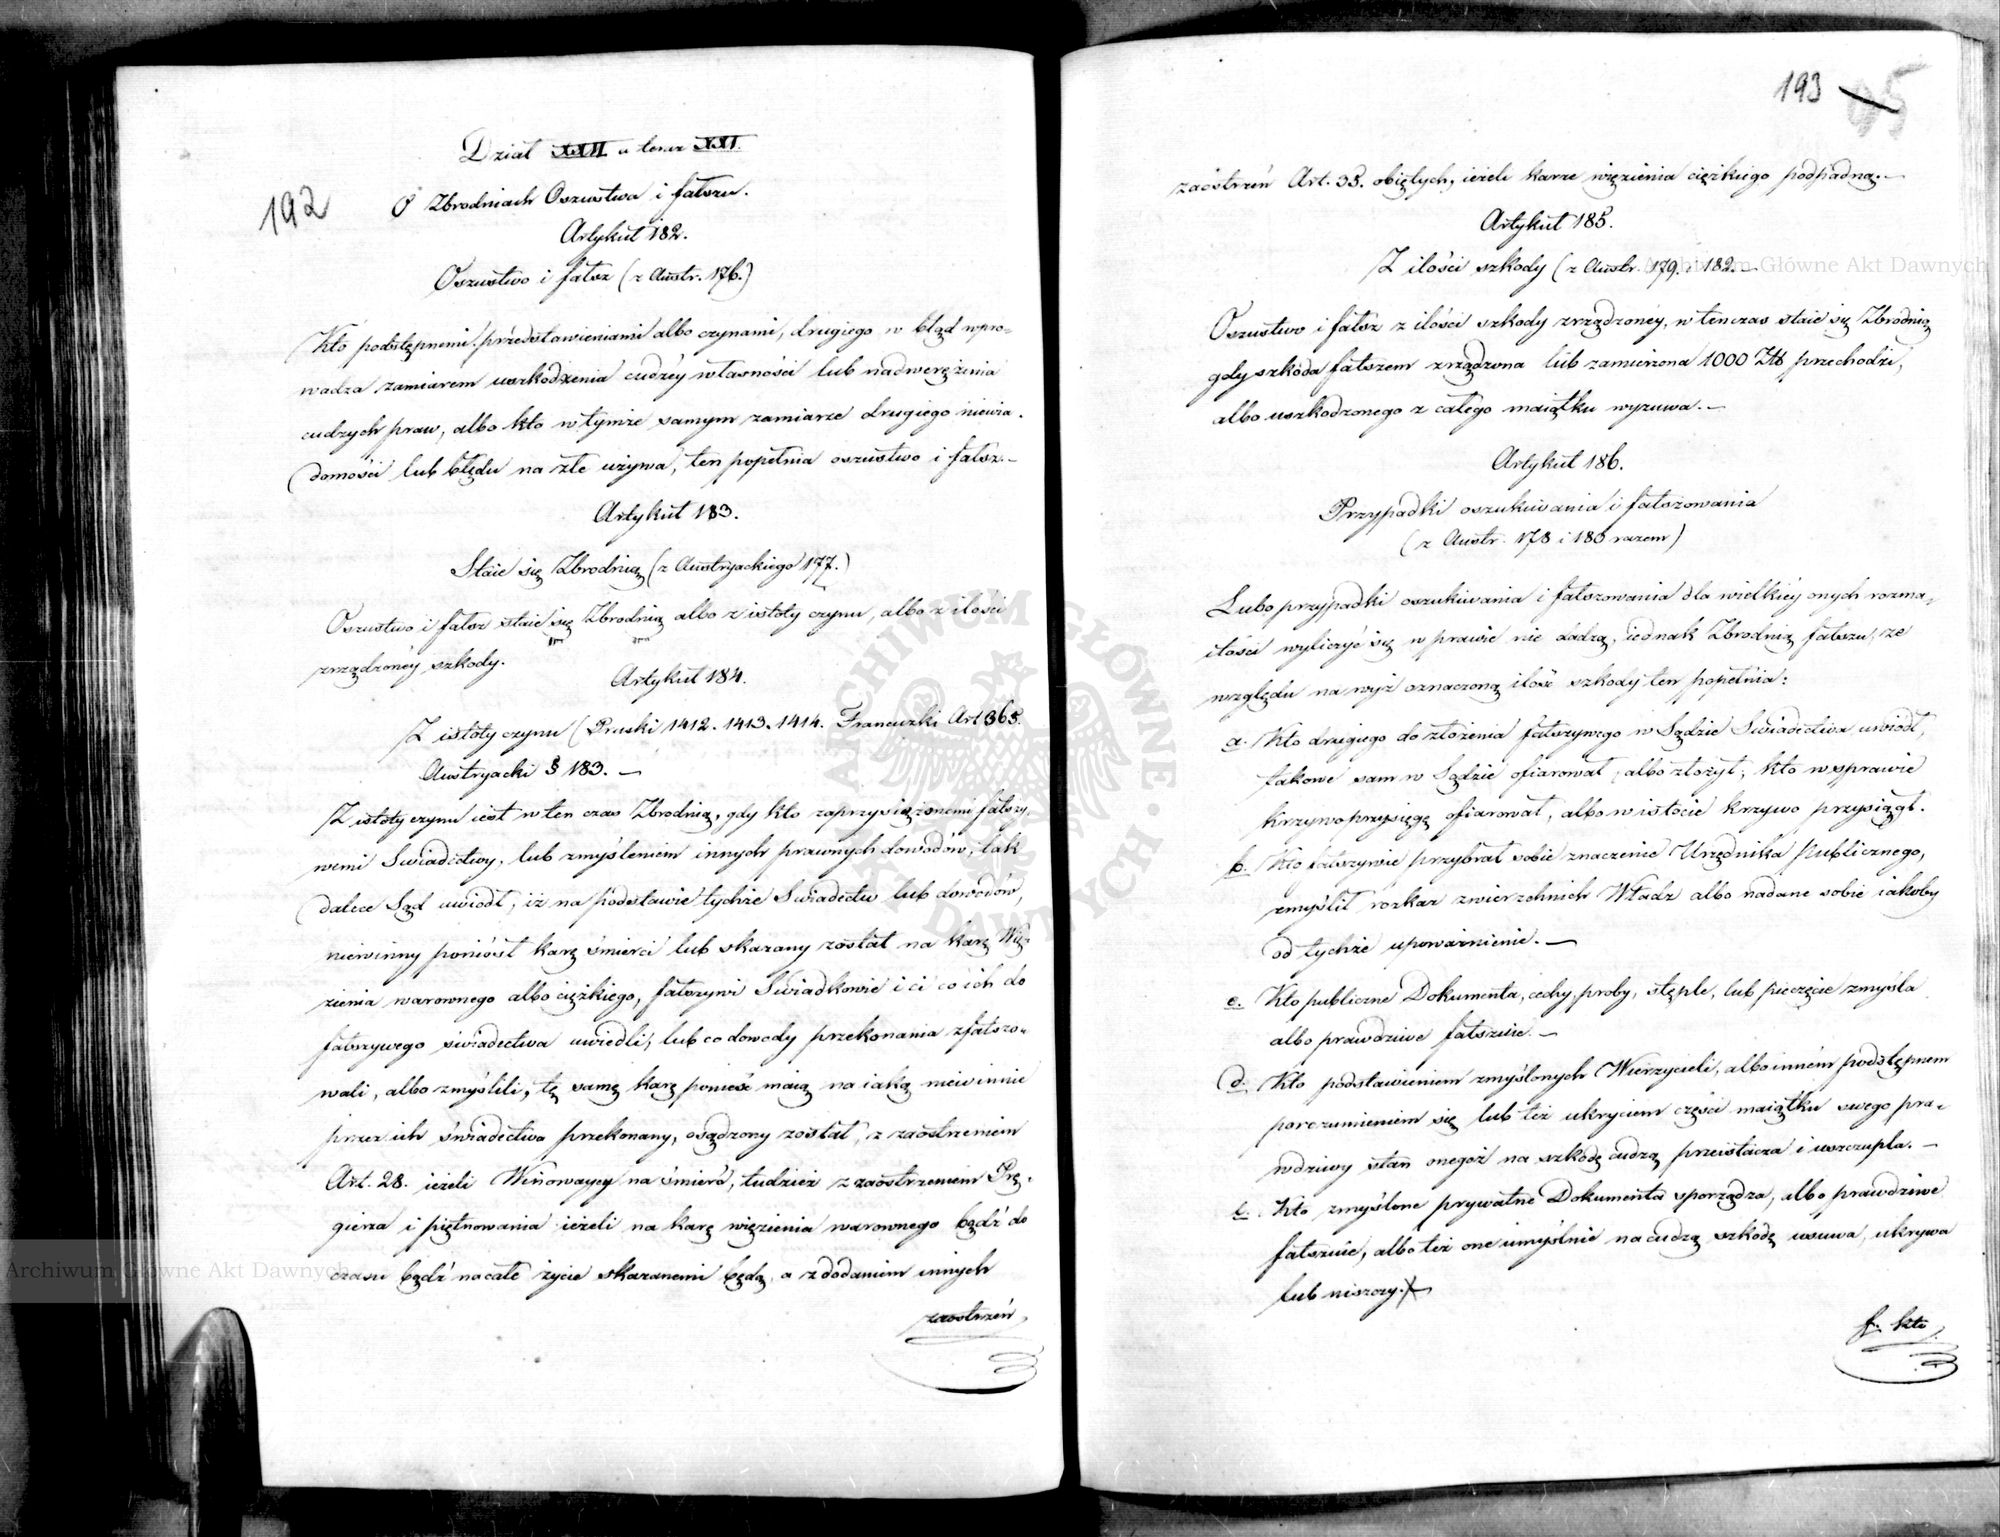 192
Dział XXII a teraz XXI.
O Zbrodniach Oszustwa i fałszu.
Artykuł 182.
Oszustwo i fałsz (z Austr. 176.)
Kto podstępnemi przedstawieniami albo czynami, drugiego w błąd wpro-
wadza zamiarem uszkodzenia cudzéy własności lub nadweręzenia
cudzych praw, albo kto w tymże samym zamiarze drugiego niewia-
domości lub błędu na złe używa, ten popełnia oszustwo i fałsz.-
Artykuł 183.
Staie się Zbrodnią (z Austryackiego 177.)
Oszustwo i fałsz staie się Zbrodnią albo z istoty czynu, albo z ilości
zrządzonéy szkody.
Artykuł 184.
Z istoty czynu (Pruski 1412. 1413. 1414. Francuzki Art 365.
Austryacki § 183. —
Z istoty czynu iest w ten czas Zbrodnią, gdy kto zaprzysiężonemi fałszy-
wemi Swiadectwy, lub zmyśleniem innych prawnych dowodów, tak
dalece Sąd uwiodł, iż na podstawie tychże Swiadectw lub dowodów,
niewinny poniósł karę śmierci lub skazany został na karę Wię-
zienia warownego albo ciężkiego, fałszywi Swiadkowie i ci co ich do
fałszywego swiadectwa uwiedli, lub co dowody przekonania zfałszo-
wali, albo zmyślili, tę samę karę ponieść maią na iaką niewinnie
przez ich świadectwa przekonany, osądzony został, z zaostrzeniem
Art. 28. ieżeli Winowaycy na śmierć, tudzież z zaostrzeniem Prę-
gierza i piętnowania ieżeli na karę więzienia warownego bądź do
czasu bądź na całe życie skazanemi będą, a z dodaniem innych
zaostrzeń
193
95
zaostrzeń Art. 35. obiętych, ieżeli karze więzienia ciężkiego podpadną.—
Artykuł 185.
Z ilości szkody (z Austr. 179. i 182.—
Oszustwo i fałsz z ilości szkody zrządzonéy, w tenczas staie się Zbrodnią
gdy szkoda fałszem zrządzona lub zamierzona 1000 Złł przechodzi,
albo uszkodzonego z całego maiątku wyzuwa.—
Artykuł 186.
Przypadki oszukiwania i fałszowania
(z Austr. 178 i 180 razem)
Lubo przypadki oszukiwania i fałszowania dla wielkiéy onych rozma-
itości wyliczyć się w prawie nie dadzą, iednak Zbrodnią fałszu, ze
względu na wyż oznaczoną ilość szkody ten popełnia:
a. Kto drugiego do złożenia fałszywego w Sądzie Swiadectwa uwiodł,
takowe sam w Sądzie ofiarował, albo złożył, kto w sprawie
krzywoprzysięgę ofiarował, albo w istocie krzywo przysiągł.
b. Kto fałszywie przybrał sobie znaczenie Urzędnika Publicznego,
zmyślił rozkaz zwierzchnich Władz albo nadane sobie iakoby
od tychże upoważnienie.—
c. Kto publiczne Dokumenta, cechy, proby, stęple, lub pieczęcie zmyśla
albo prawdziwe fałszuie.—
d. Kto podstawieniem zmyślonych Wierzycieli, albo inném podstępnem
porozumieniem się lub też ukryciem części maiątku swego pra-
wdziwy stan onegoż na szkodę cudzą przeistacza i uszczupla.—
e. Kto zmyślone prywatne Dokumenta sporządza, albo prawdziwe
fałszuie, albo też one umyślnie na cudzą szkodę usuwa, ukrywa
lub niszczy.—
f. kto
Archiwum Główne Akt Dawnych
Archiwum Główne Akt Dawnych
ARCHIWUM GŁÓWNE AKT DAWNYCH